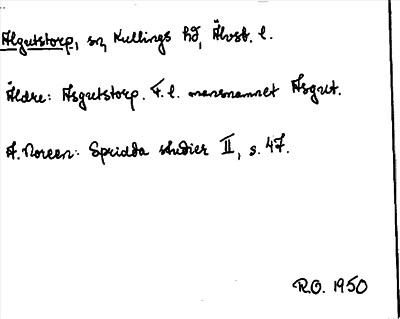 Algutstorp, sn, Kullings hd, Älvsb. l.
Äldre: Asgutstorp. F. l. mansnamnet Asgut.
A. Noreen: Spridda studier II, s. 47.
R.O. 1950